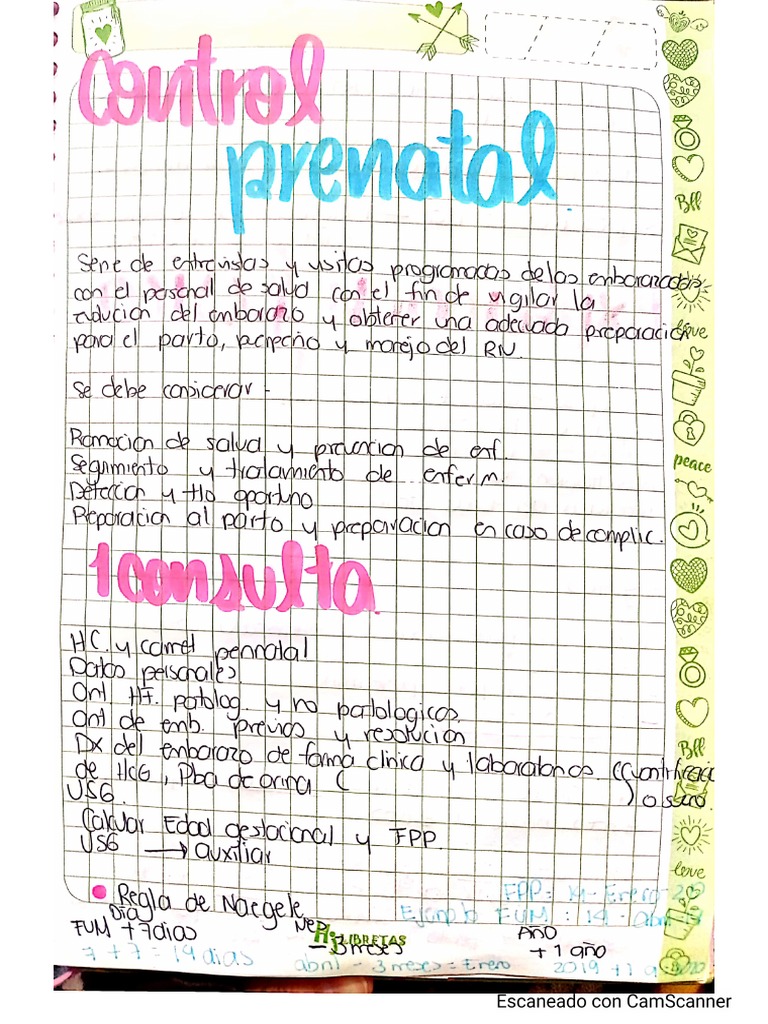 control
prenatal.
Serie de entrevistas y visitas programadas de las embarazadas
con el personal de salud con el fin de vigilar la
evolucion del embarazo y obtener una adecuada preparación
para el parto, y manejo del RN.
Se debe considerar -
Promocion de salud y prevencion de enf.
Seguimiento y tratamiento de enferm.
Detección y tto oportuno
Preparacion al parto y preparacion en caso de complic.
1 consulta.
HC. y carnet perinatal
Datos personales
Ant HF. patolog. y no patologicos.
Ant de emb. previos y resolución
Dx del embarazo de forma clinica y laboratorios
de HCG, Pba de orina (
) o suero.
USG.
Calcular Edad gestacional y FPP.
USG → auxiliar
FPP:
Regla de Naegele
Ejemplo FUM: 14 -
Dia
Año
FUM + 7 dias
- 3 meses
+ 1 año
LIBRETAS
abril - 3 meses = Enero
2019 + 1
Bff
love
peace
Bff
love
Escaneado con CamScanner